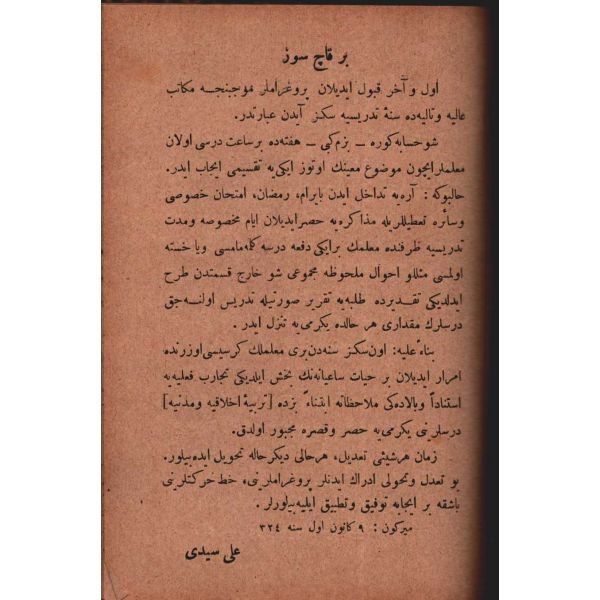 بر قاچ سوز
اول و آخر قبول ايديلان پروغراملر موجبنجه مكاتب
عاليه وتاليه‌ده سنهٔ تدريسيه سكز آيدن عبارتدر.
شو حسابه كوره ــ بزم كبى ــ هفته‌ده برساعت درسى اولان
معلملر ايچون موضوع معينك اوتوز ايكى‌يه تقسيمى ايجاب ايدر.
حالبوكه : آره‌يه تداخل ايدن بايرام، رمضان، امتحان خصوصى
وسائره تعطيللريله مذاكره‌يه حصر ايديلان ايام مخصوصه ومدت
تدريسيه ظرفنده معلمك برايكى دفعه درسه كله‌مامسى ويا خسته
اولمسى مثللو احوال ملحوظه مجموعى شو خارج قسمتدن طرح
ايدلديكى تقديرده طلبه‌يه تقرير صورتيله تدريس اولنه‌جق
درسلرك مقدارى هر حالده يكرمى‌يه تنزل ايدر .
بناءً عليه : اون سكز سنه‌دن‌برى معلملك كرسيسى اوزرنده
امرار ايديلان بر حيات ساعيانه‌نك بخش ايلديكى تجارب فعليه‌يه
استناداً وبالاده‌كى ملاحظاته ابتناءً بزده [تربيهٔ اخلاقيه ومدنيه]
درسلرنى يكرمى‌يه حصر وقصره مجبور اولدق.
زمان هرشيئى تعديل، هرحالى ديكر حاله تحويل ايده‌بيلور.
بو تعدل وتحولى ادراك ايدنلر پروغراملرينى، خط حركتلرينى
باشقه بر ايجابه توفيق وتطبيق ايليه‌بيلورلر .
ميركون : ٩ كانون اول سنه ٣٢٤
على سيدى